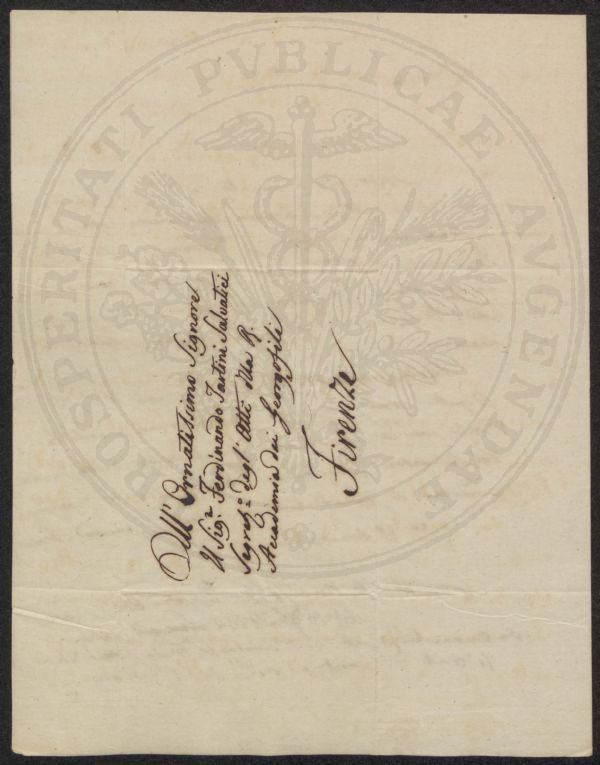 PROSPERITATI PVBLICAE AVGENDAE
All' Ornatissimo Signore
Il Sig.r Ferdinando Tartini Salvatici
Segret.o degl' Atti della R.
Accademia dei Georgofili
Firenze